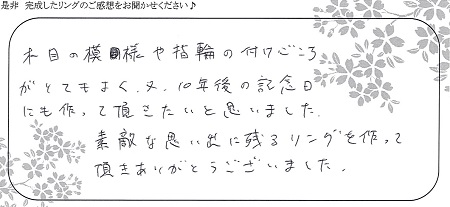 是非 完成したリングのご感想をお聞かせください♪
木目の模様や指輪の付けごころ
がとてもよく、又、10年後の記念日
にも作って頂きたいと思いました。
素敵な思い出に残るリングを作って
頂きありがとうございました。